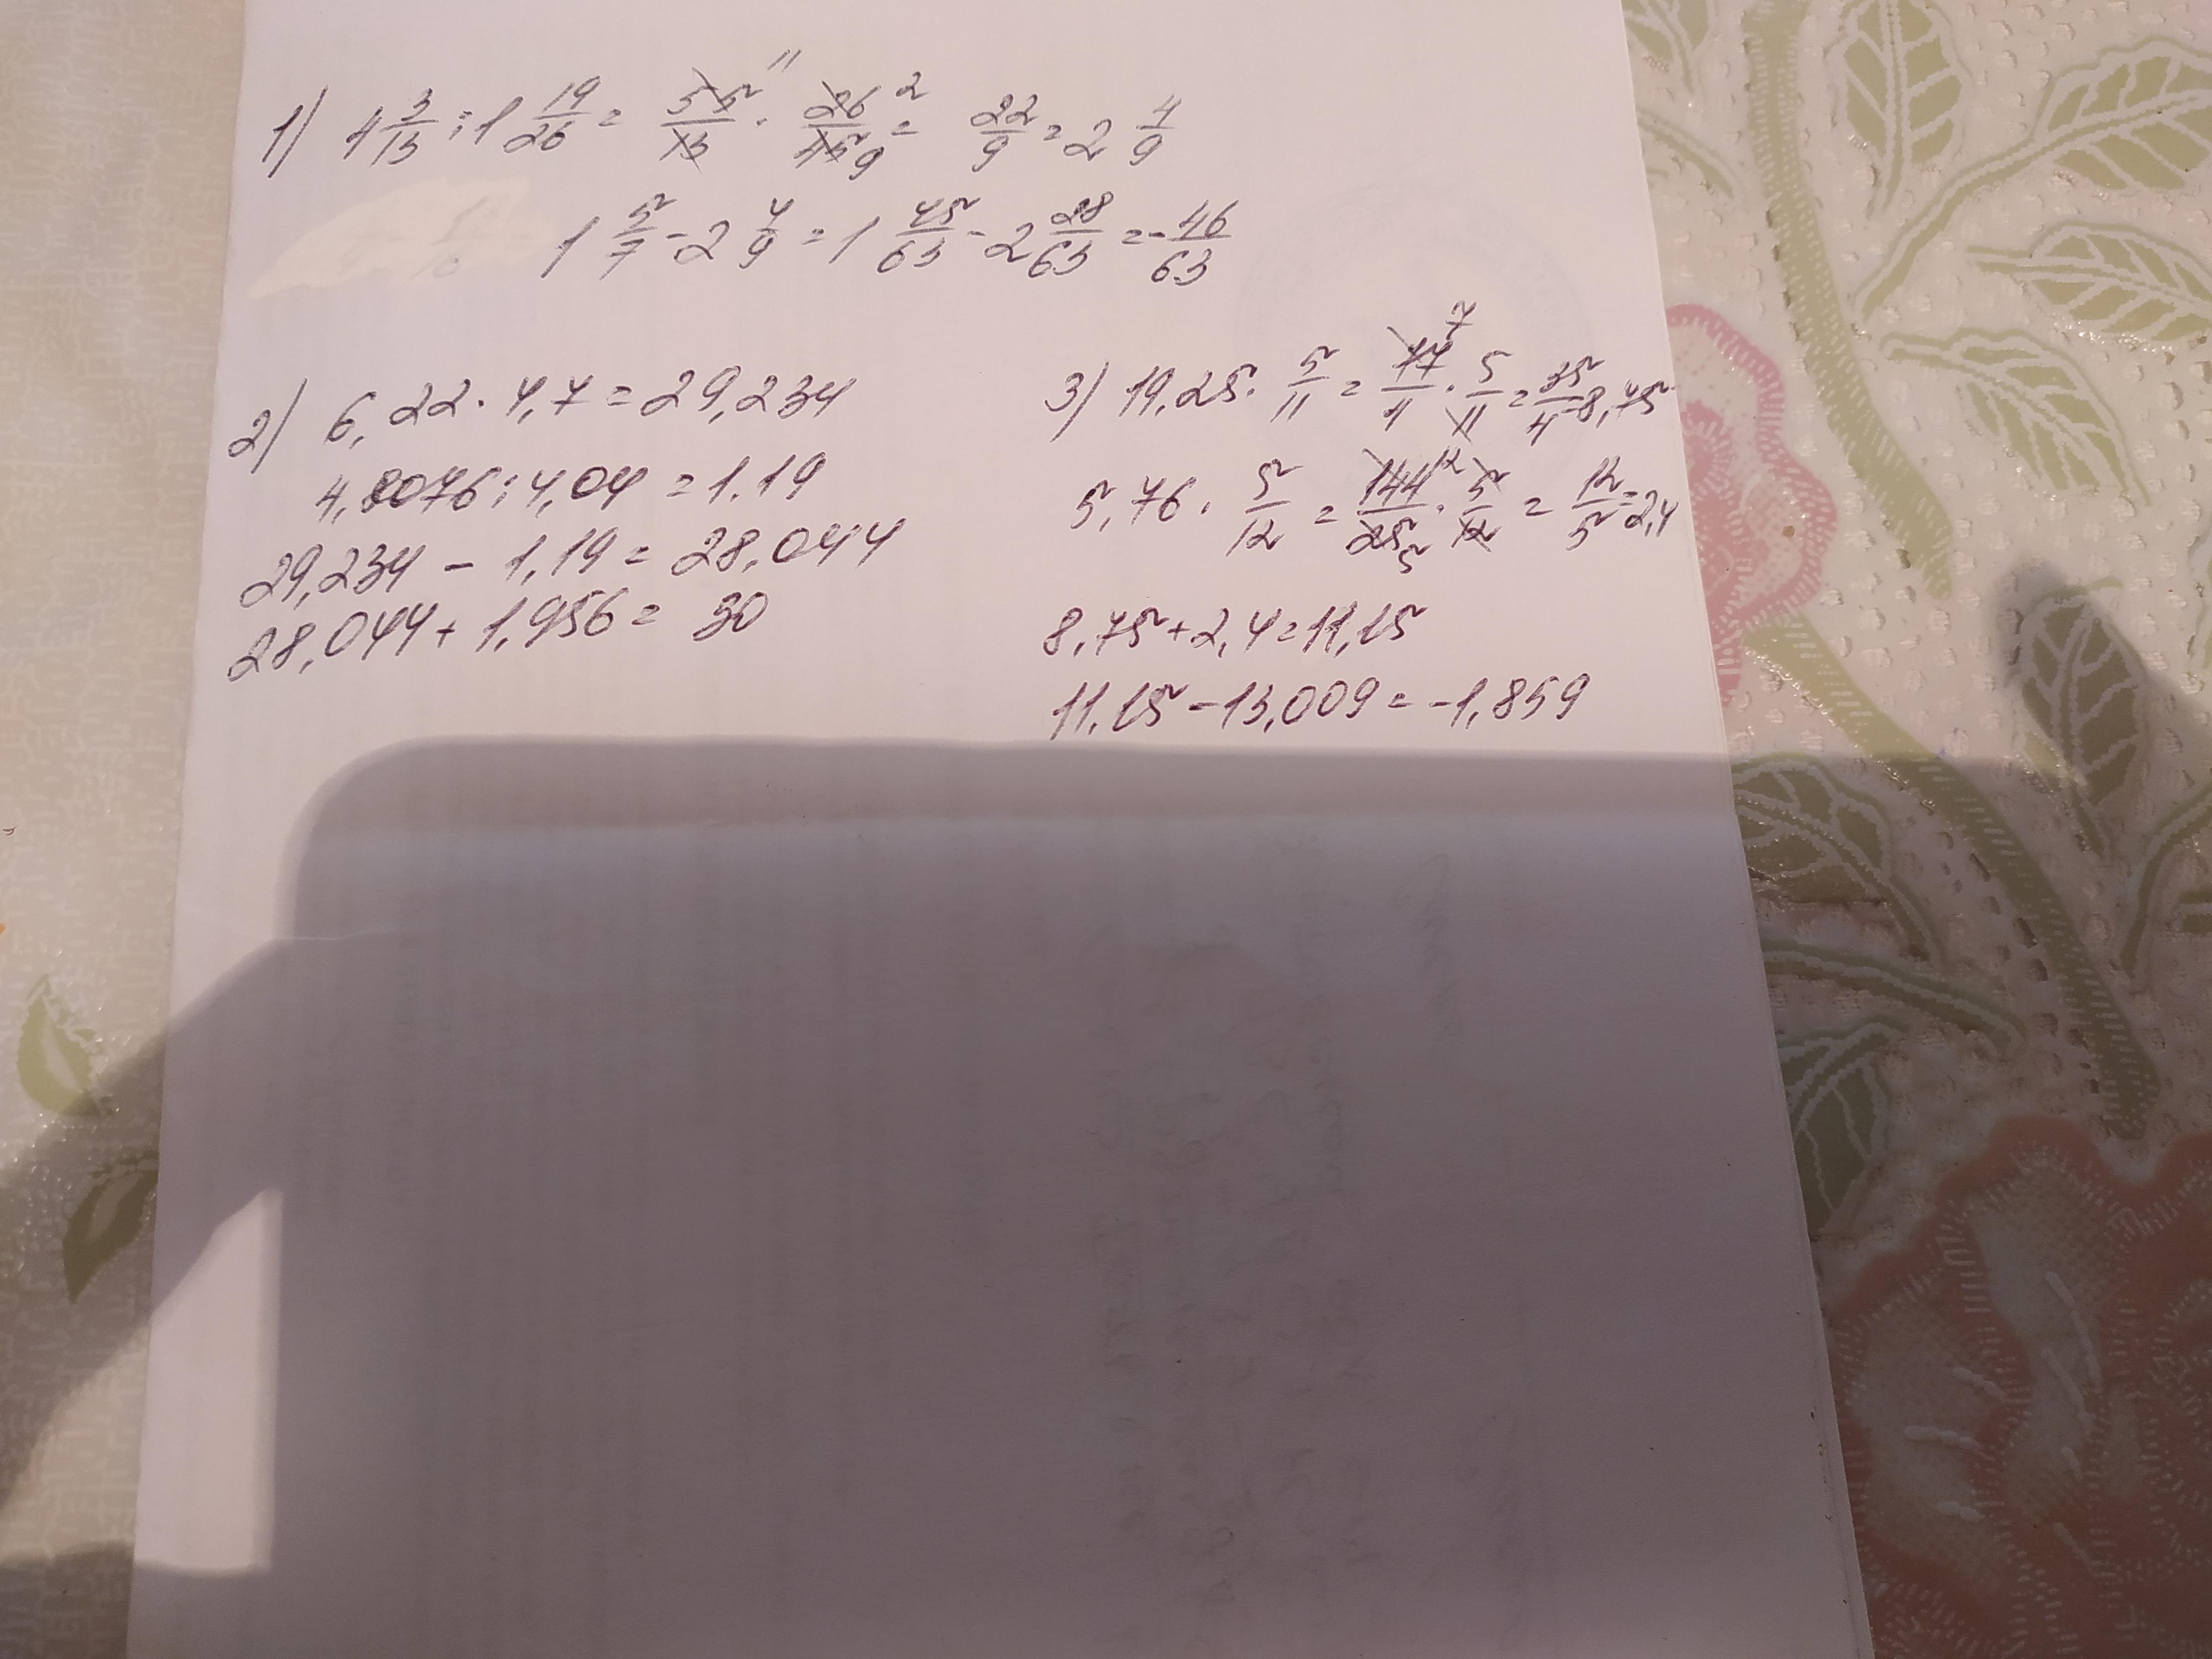 1) 4 3/13 : 1 19/26 = 55/13 · 26/45 = 22/9 = 2 4/9
1 5/7 - 2 4/9 = 1 45/63 - 2 28/63 = - 46/63
2) 6,22 · 4,7 = 29,234
4,8076 : 4,04 = 1.19
29,234 - 1,19 = 28,044
28,044 + 1,956 = 30
3) 19,25 · 5/11 = 77/4 · 5/11 = 35/4 = 8,75
5,76 · 5/12 = 144/25 · 5/12 = 12/5 = 2,4
8,75 + 2,4 = 11,15
11,15 - 13,009 = -1,859